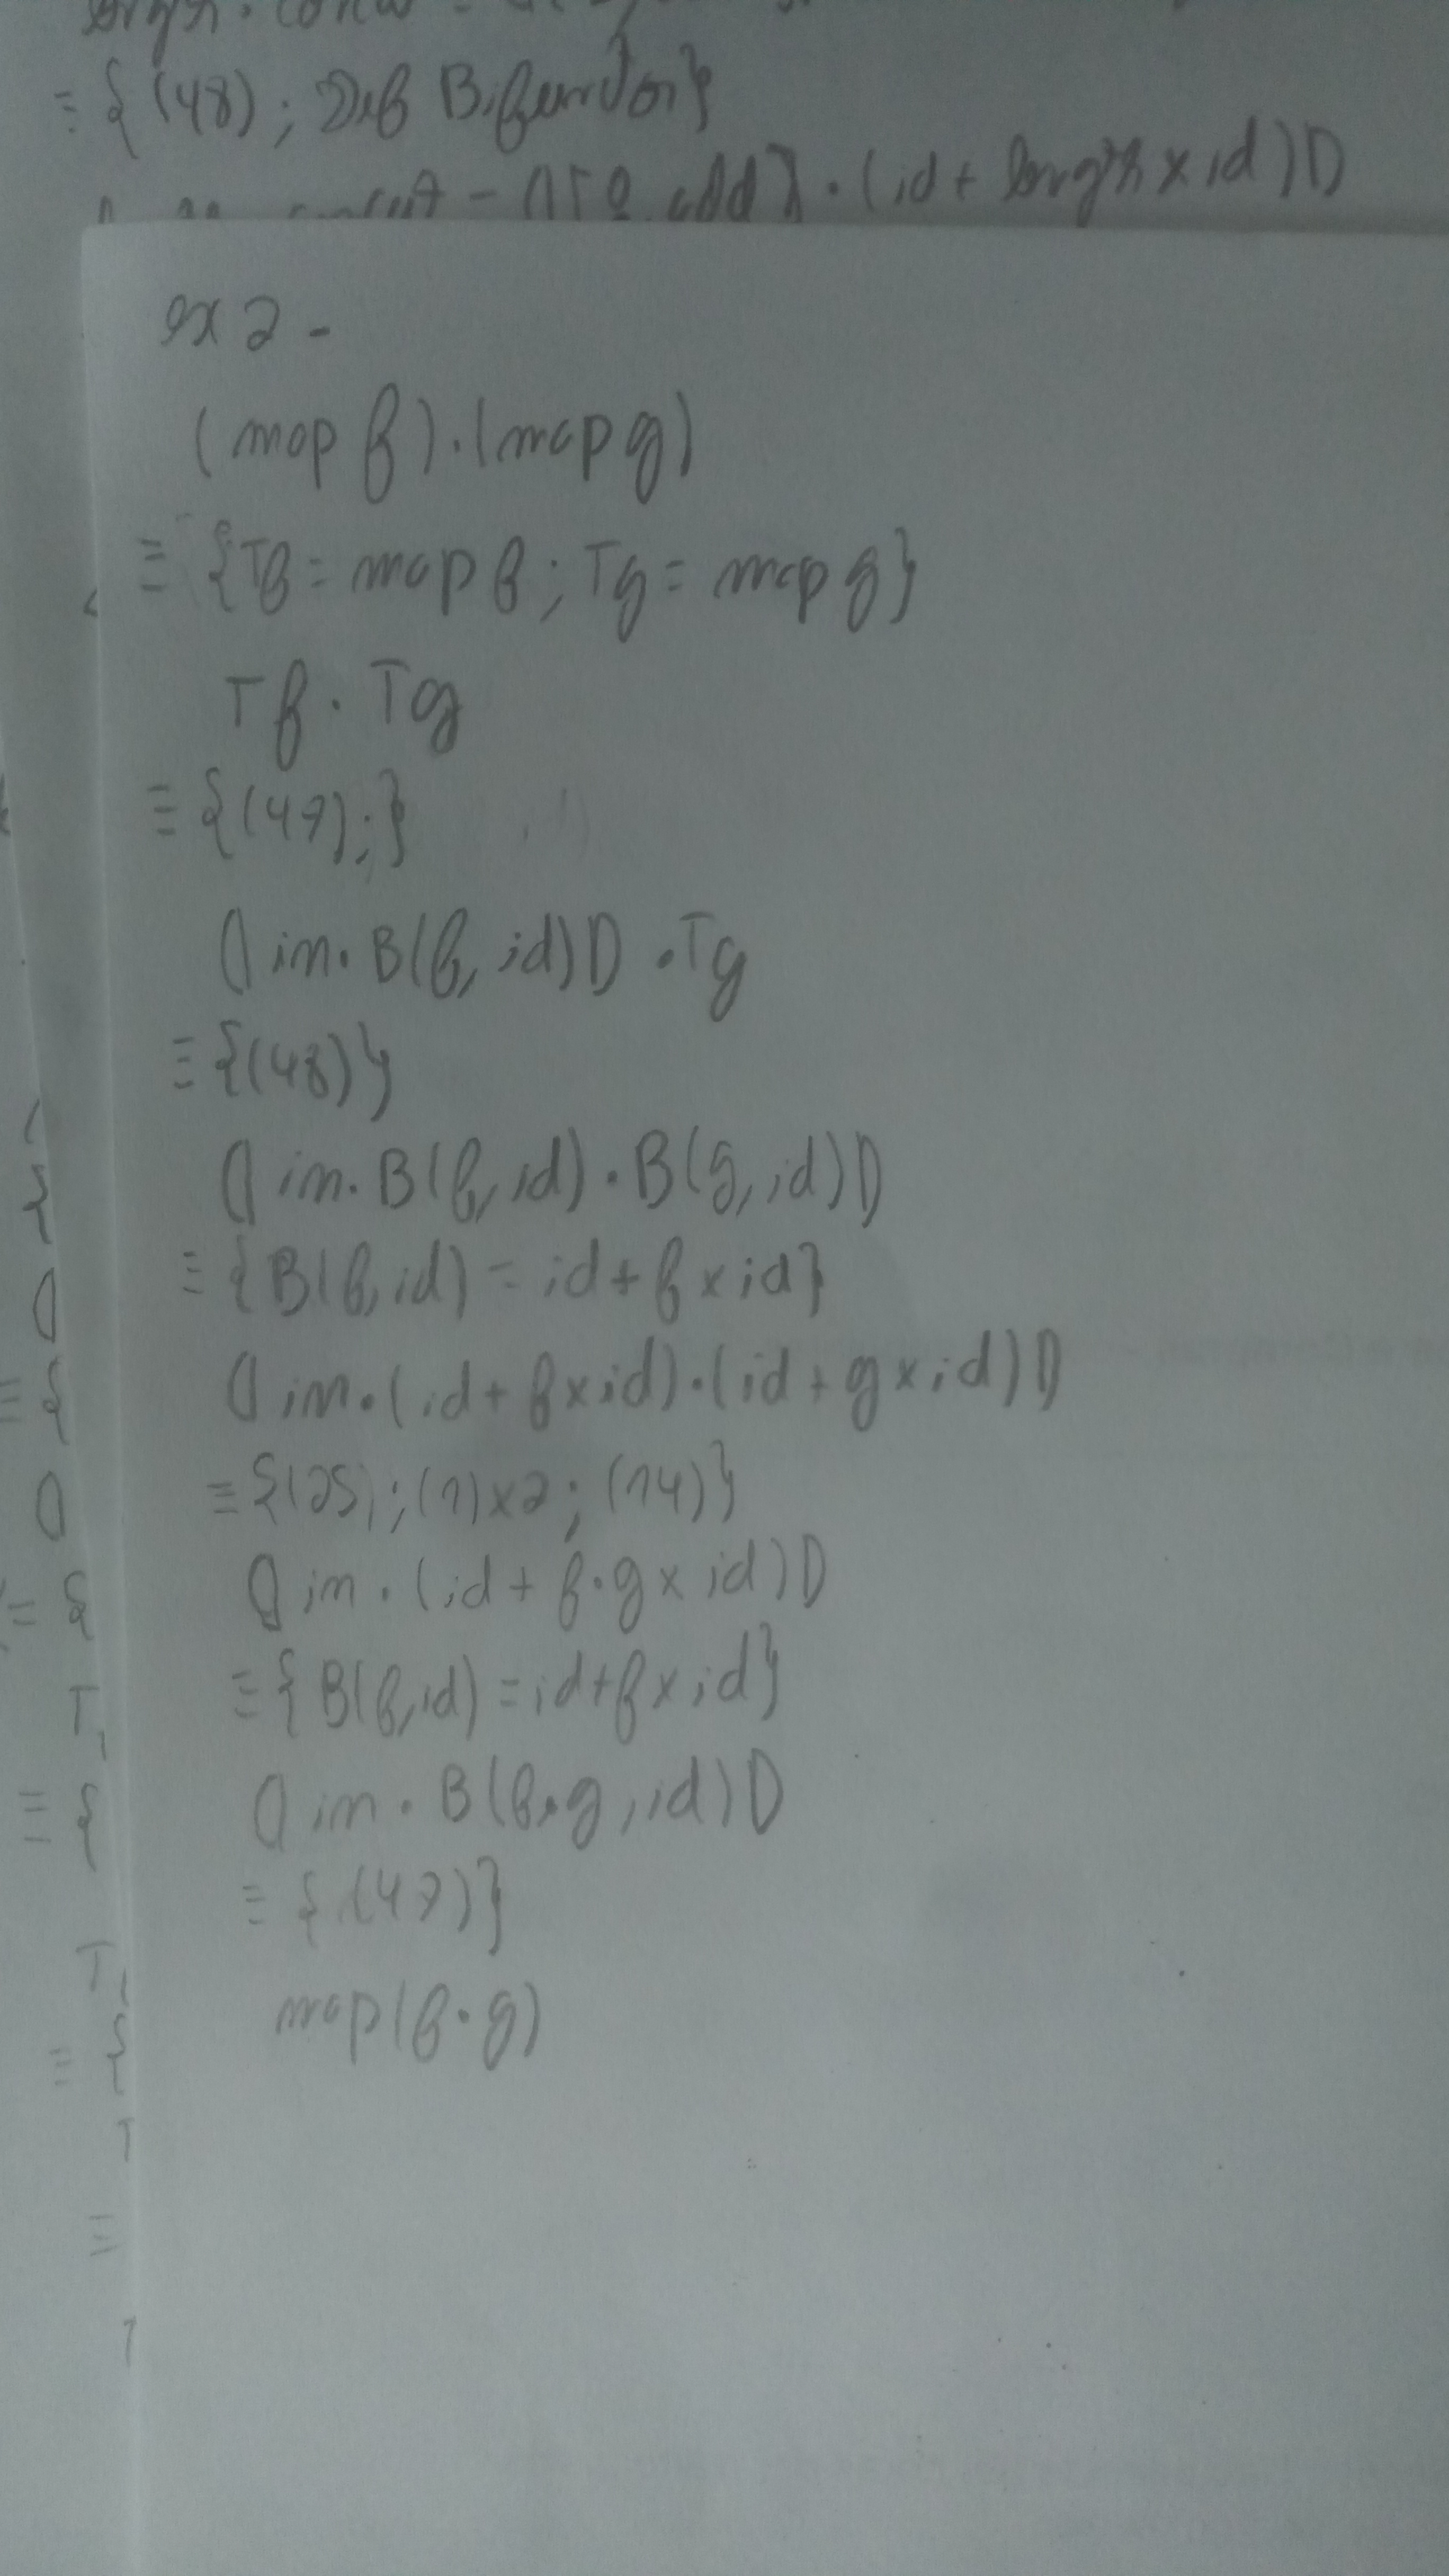 ≡ {(48); Def Bifunctor}
. (id + length x id)D
ex 2 -
(map f).(map g)
≡ {Tf = map f; Tg = map g}
Tf . Tg
≡ {(47);}
(| in. B(f, id)|) . Tg
≡ {(48)}
(| in. B(f, id) . B(g, id)|)
≡ {B(f, id) = id + f x id}
(| in. (id + f x id) . (id + g x id)|)
≡ {(25); (1)x2; (14)}
(| in . (id + f.g x id)|)
≡ {B(f, id) = id + f x id}
(| in . B(f.g, id)|)
≡ {(47)}
map(f.g)